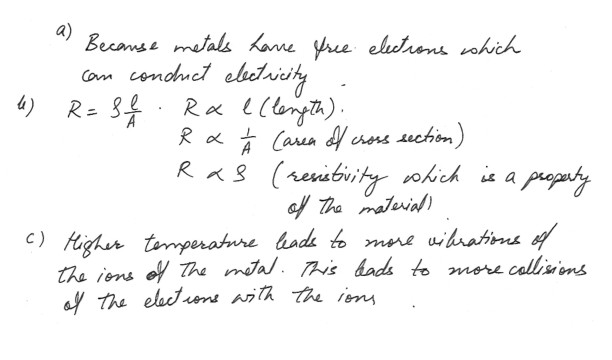 a)
Because metals have free electrons which
can conduct electricity
b) R = ρ l/A . R ∝ l (length).
R ∝ 1/A (area of cross section)
R ∝ ρ (resistivity which is a property
of the material)
c) Higher temperature leads to more vibrations of
the ions of the metal. This leads to more collisions
of the electrons with the ions .